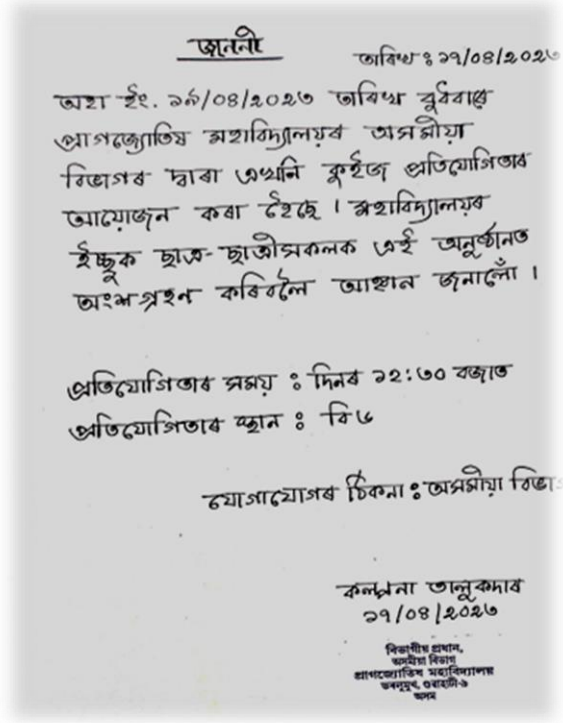 জাননী
তাৰিখ : ১৭/০৪/২০২৩
অহা ইং. ১৯/০৪/২০২৩ তাৰিখ বুধবাৰে
প্ৰাগজ্যোতিষ মহাবিদ্যালয়ৰ অসমীয়া
বিভাগৰ দ্বাৰা এখনি কুইজ প্ৰতিযোগিতাৰ
আয়োজন কৰা হৈছে । মহাবিদ্যালয়ৰ
ইচ্ছুক ছাত্ৰ-ছাত্ৰীসকলক এই অনুষ্ঠানত
অংশগ্ৰহণ কৰিবলৈ আহ্বান জনালোঁ ।
প্ৰতিযোগিতাৰ সময় : দিনৰ ১২:৩০ বজাত
প্ৰতিযোগিতাৰ স্থান : বি ৬
যোগাযোগৰ ঠিকনা : অসমীয়া বিভাগ
কল্পনা তালুকদাৰ
১৭/০৪/২০২৩
বিভাগীয় প্ৰধান,
অসমীয়া বিভাগ
প্ৰাগজ্যোতিষ মহাবিদ্যালয়
ভৰলুমুখ, গুৱাহাটী-৯
অসম